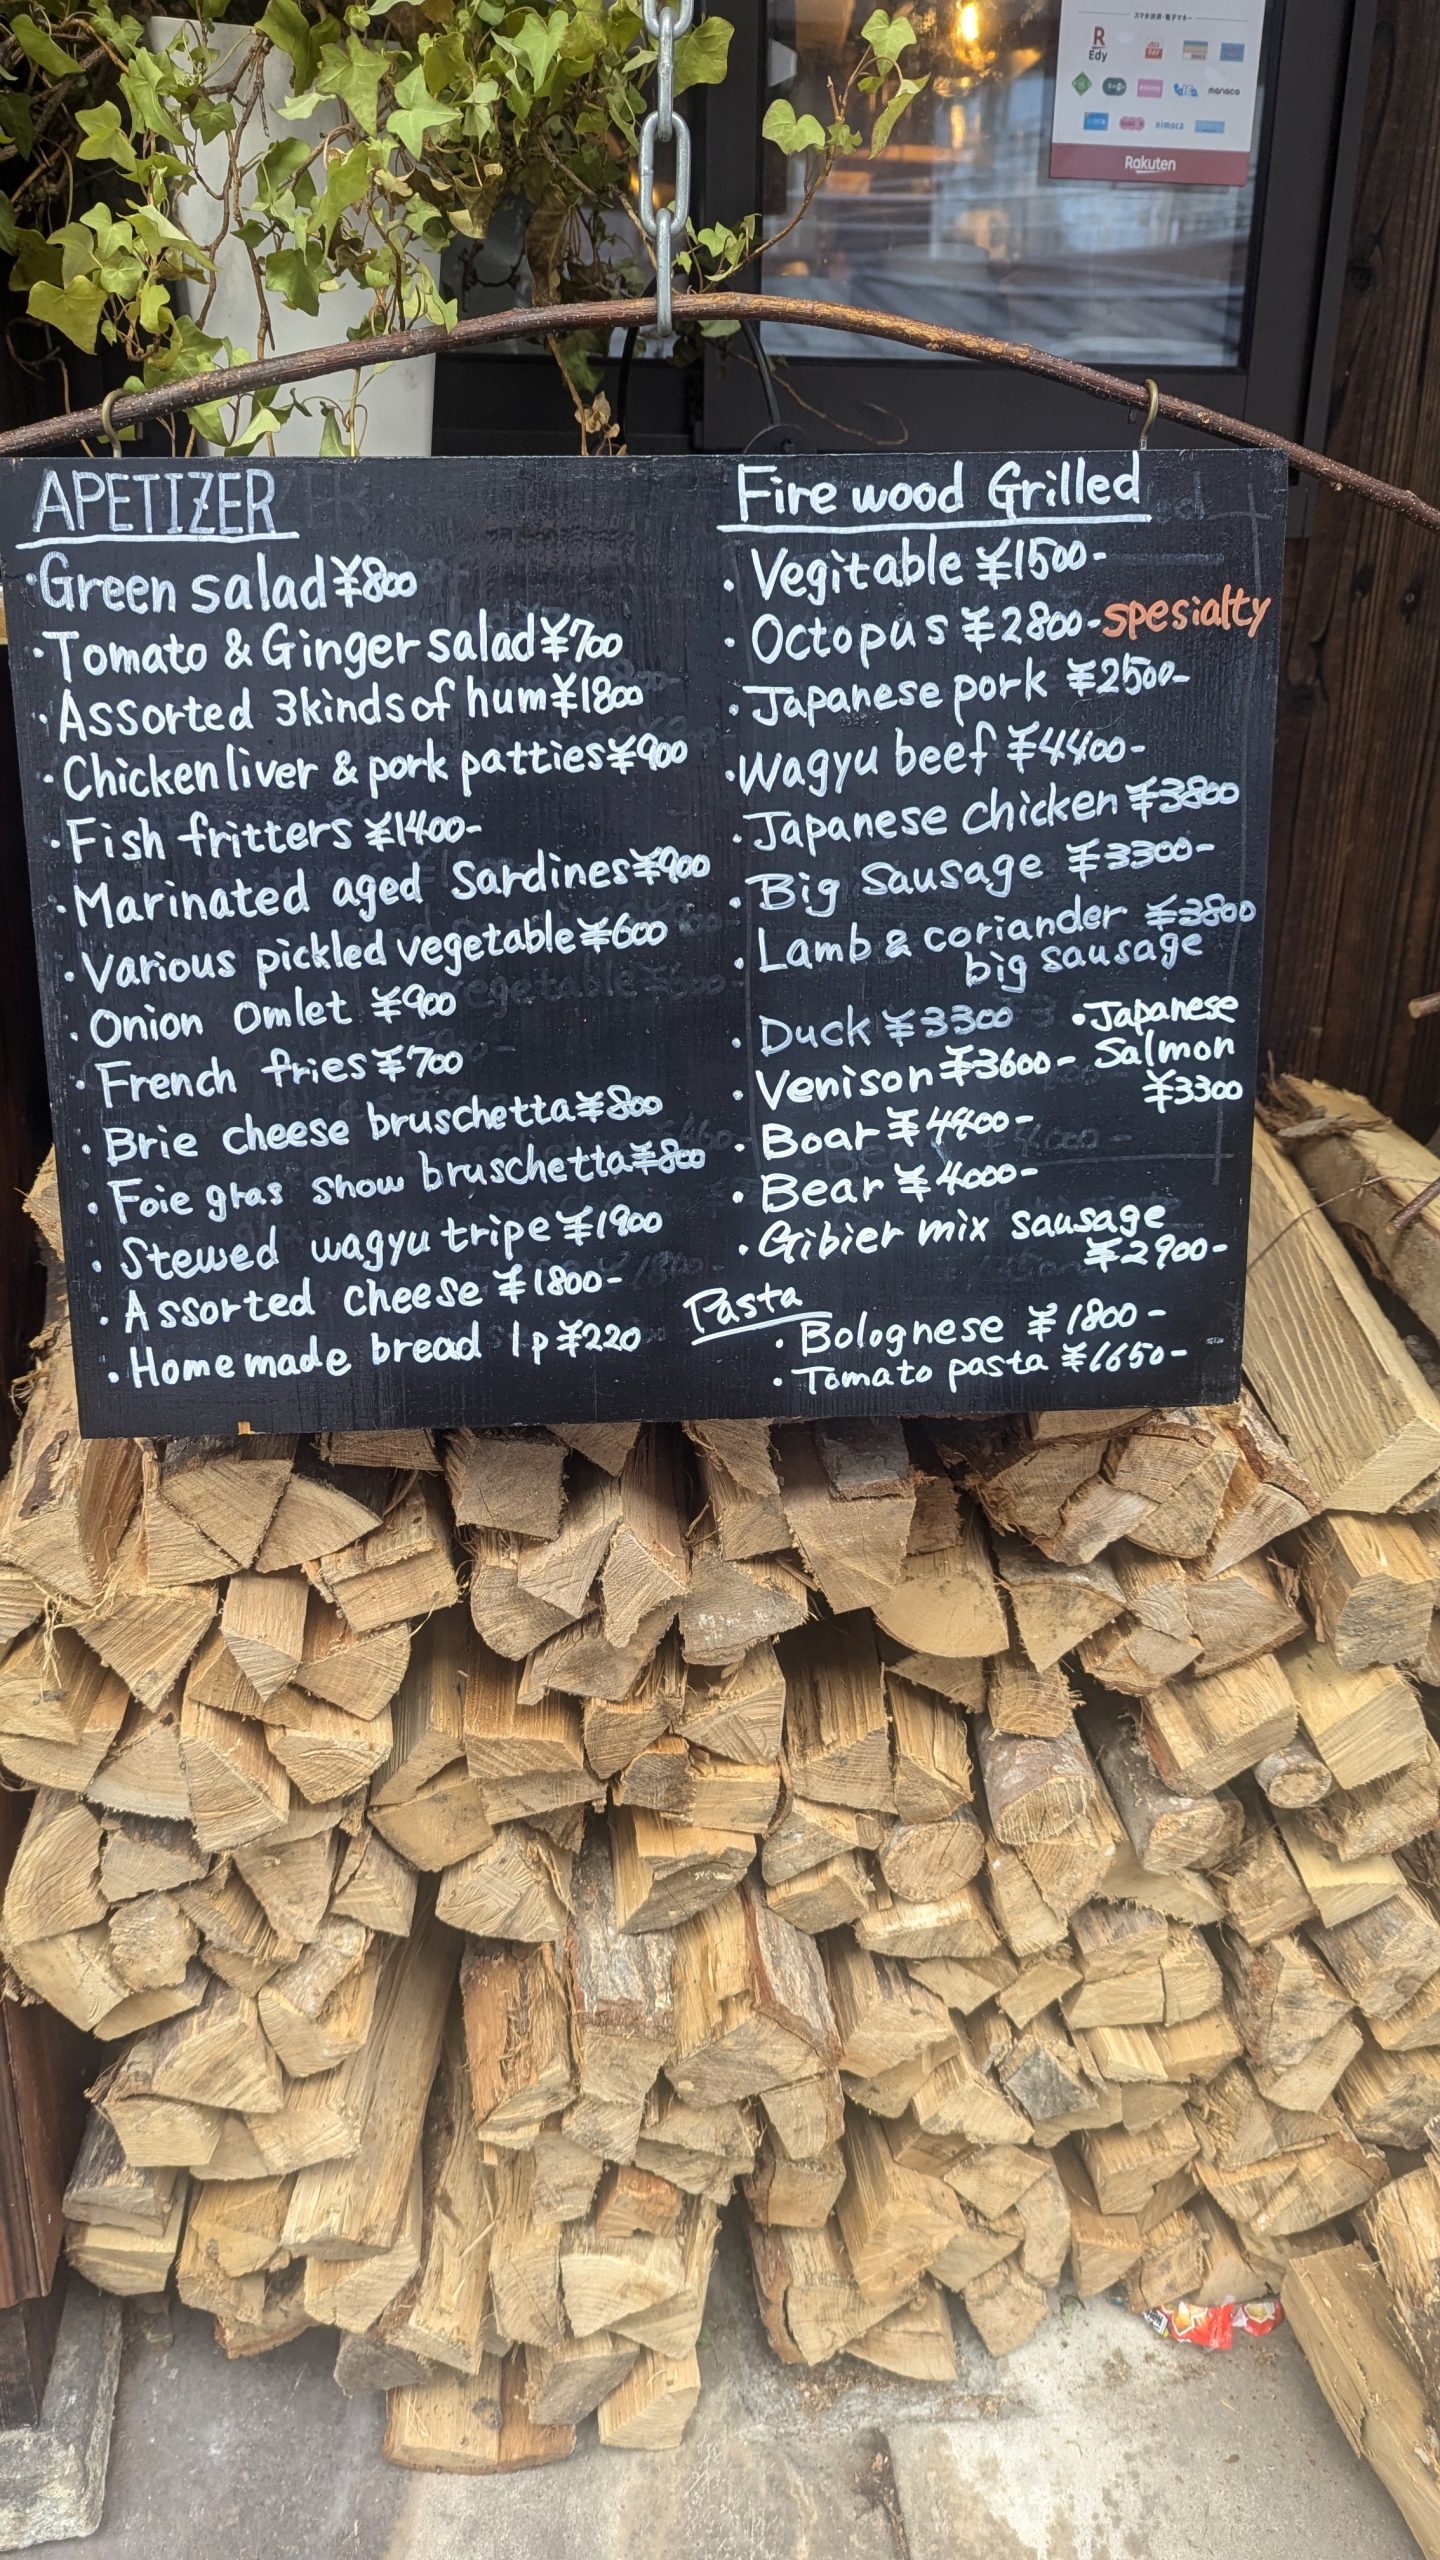 スマホ決済・電子マネー
R
Edy
manaca
nimoca
Rakuten
APETIZER
·Green salad ¥800
·Tomato & Ginger salad ¥700
·Assorted 3kinds of hum ¥1800
·Chicken liver & pork patties ¥900
·Fish fritters ¥1400-
·Marinated aged Sardines ¥900
·Various pickled vegetable ¥600
·Onion Omlet ¥900
·French fries ¥700
·Brie cheese bruschetta ¥800
·Foie gras show bruschetta ¥800
·Stewed wagyu tripe ¥1900
·Assorted cheese ¥1800-
·Homemade bread 1p ¥220
Fire wood Grilled
·Vegitable ¥1500-
·Octopus ¥2800- spesialty
·Japanese pork ¥2500-
·Wagyu beef ¥4400-
·Japanese chicken ¥3800
·Big Sausage ¥3300-
·Lamb & coriander ¥3800
big sausage
·Duck ¥3300
·Venison ¥3600-
·Japanese
Salmon
¥3300
·Boar ¥4400-
·Bear ¥4000-
·Gibier mix sausage
¥2900-
Pasta
·Bolognese ¥1800-
·Tomato pasta ¥1650-